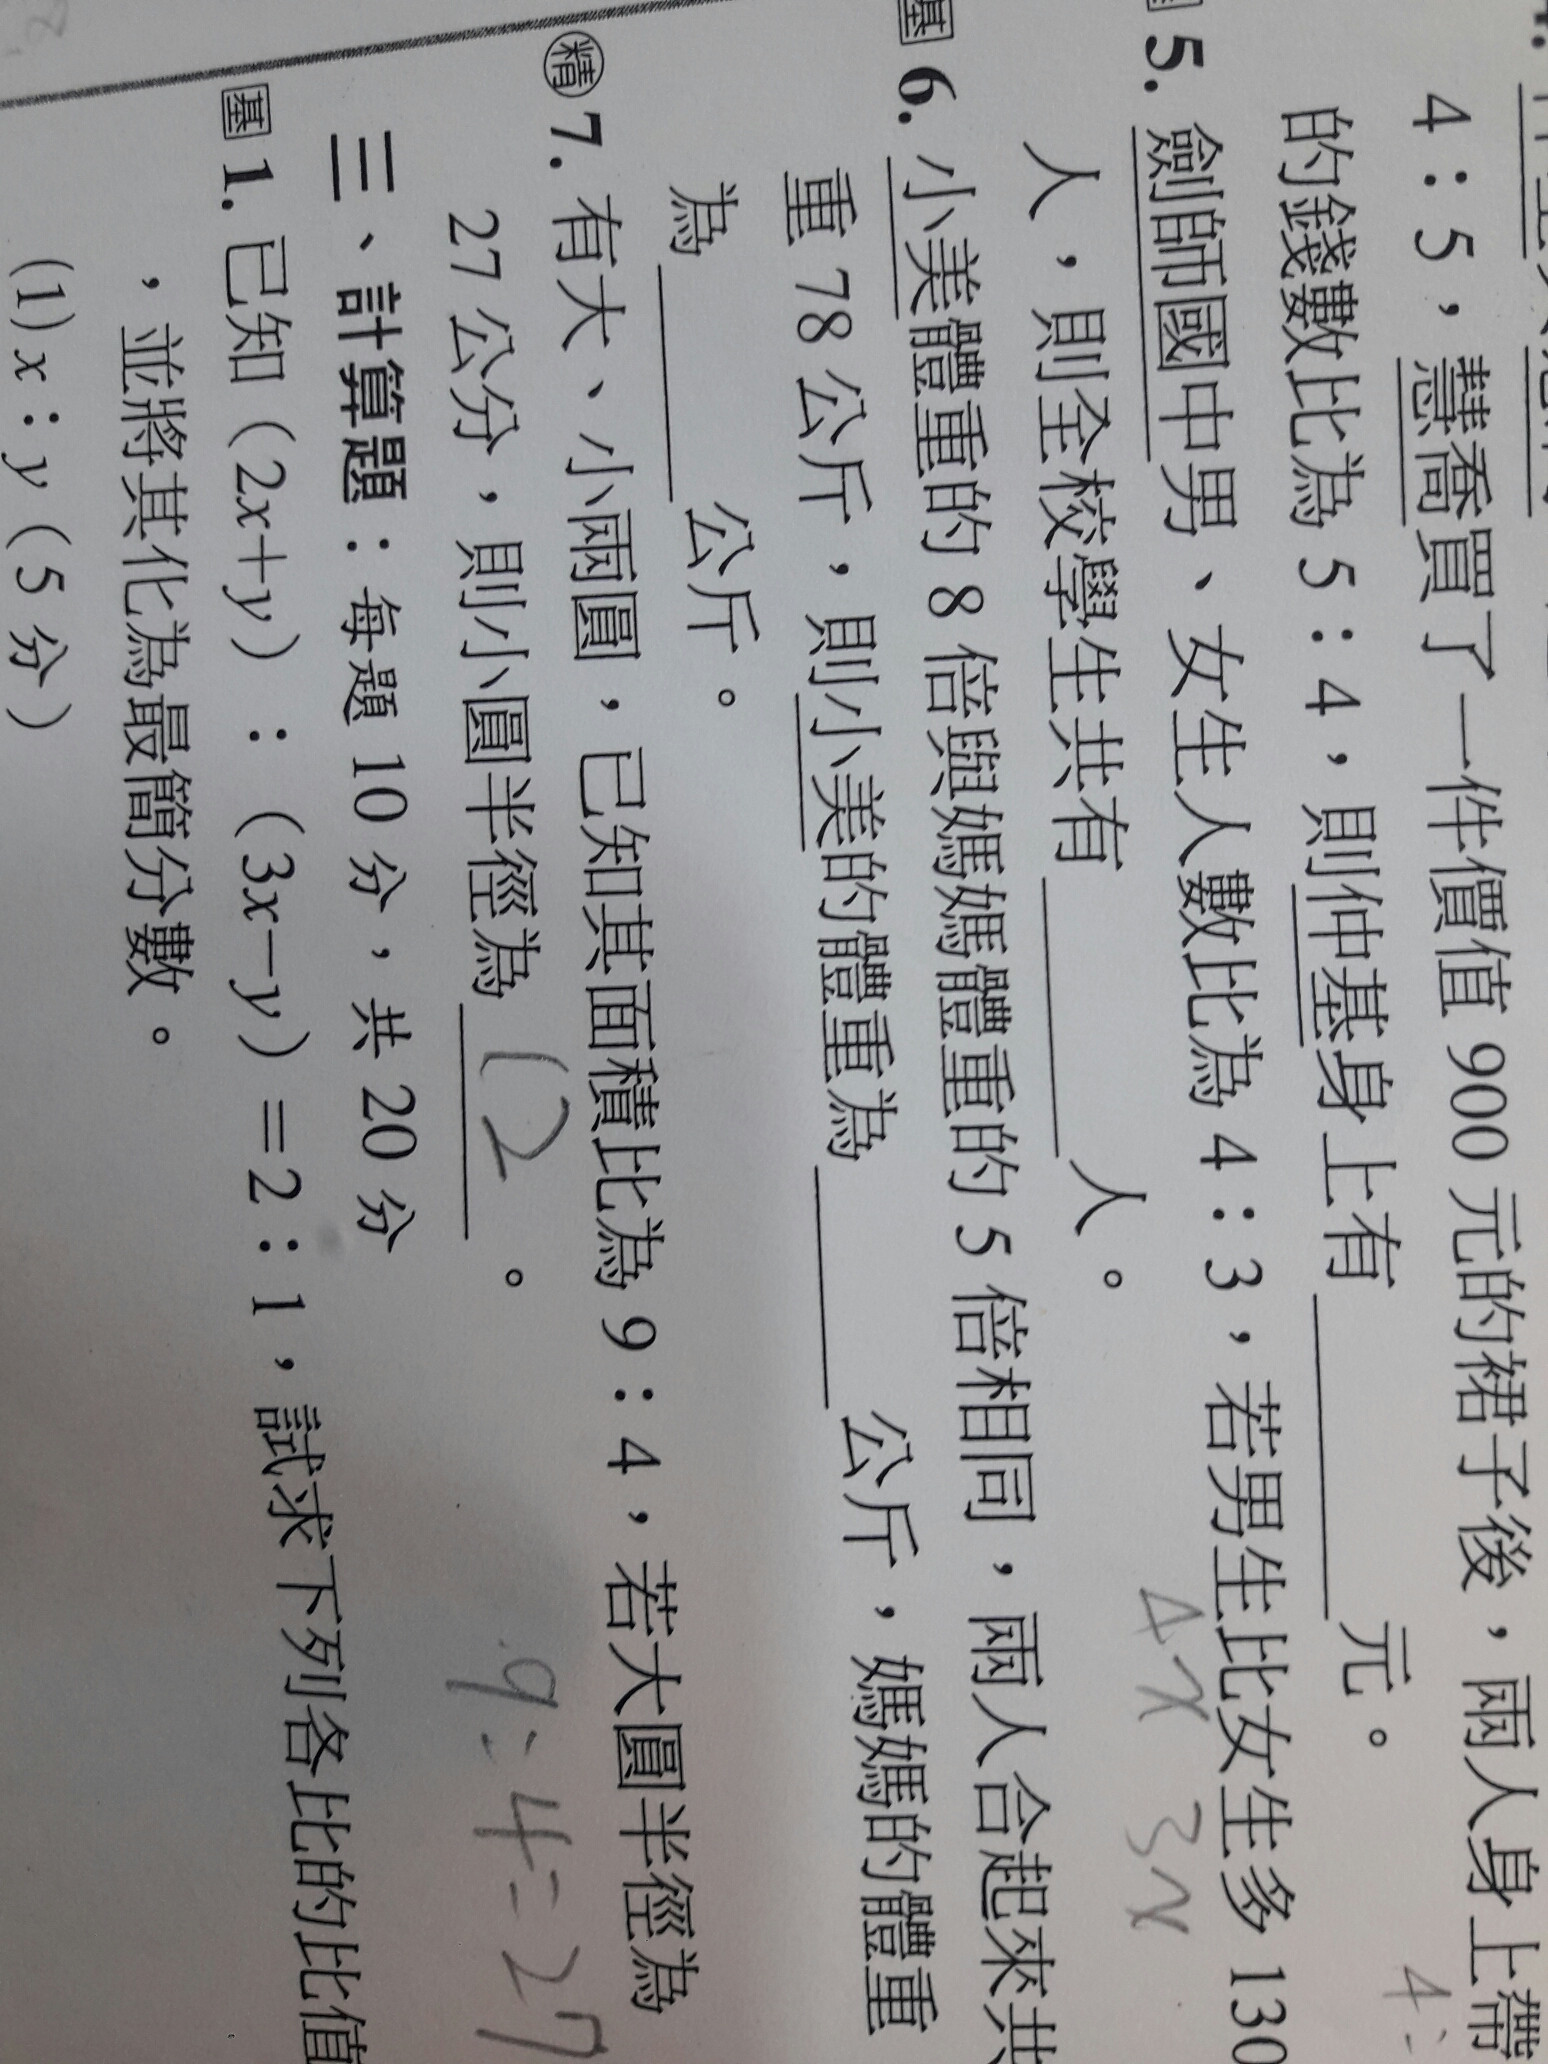 4：5，慧喬買了一件價值 900 元的裙子後，兩人身上帶
的錢數比為 5：4，則仲基身上有＿＿＿元。
4：
5. 劍師國中男、女生人數比為 4：3，若男生比女生多 130
人，則全校學生共有＿＿＿人。
4x 3x
基 6. 小美體重的 8 倍與媽媽體重的 5 倍相同，兩人合起來共
重 78 公斤，則小美的體重為＿＿＿公斤，媽媽的體重
為＿＿＿公斤。
精 7. 有大、小兩圓，已知其面積比為 9：4，若大圓半徑為
27 公分，則小圓半徑為 12 。
9：4＝27
三、計算題：每題 10 分，共 20 分
基 1. 已知（2x＋y）：（3x－y）＝2：1，試求下列各比的比值
，並將其化為最簡分數。
(1) x：y（5 分）